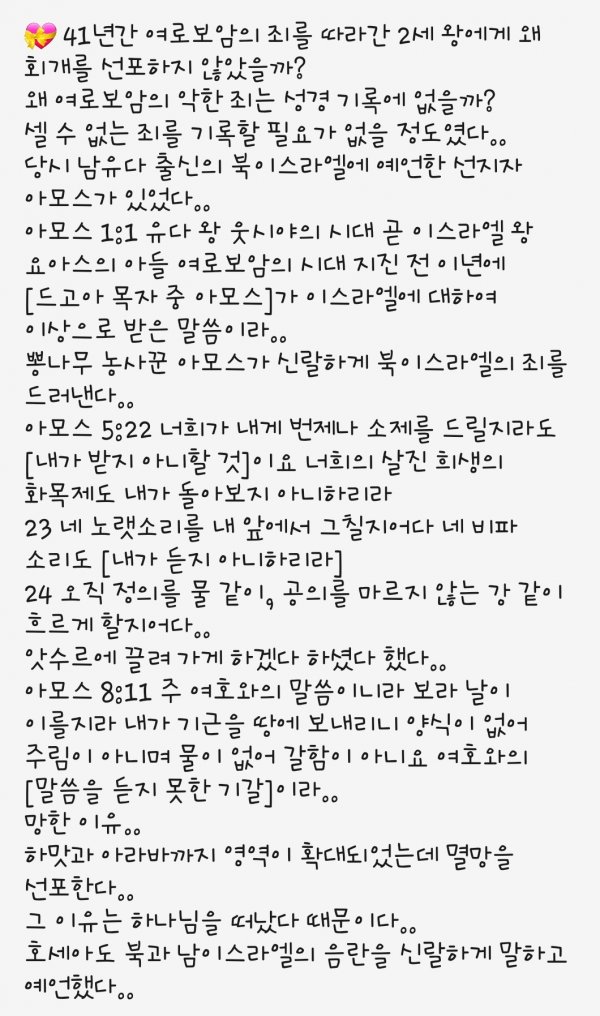 💝 41년간 여로보암의 죄를 따라간 2세 왕에게 왜
회개를 선포하지 않았을까?
왜 여로보암의 악한 죄는 성경 기록에 없을까?
셀 수 없는 죄를 기록할 필요가 없을 정도였다。。
당시 남유다 출신의 북이스라엘에 예언한 선지자
아모스가 있었다。。
아모스 1:1 유다 왕 웃시야의 시대 곧 이스라엘 왕
요아스의 아들 여로보암의 시대 지진 전 이년에
[드고아 목자 중 아모스]가 이스라엘에 대하여
이상으로 받은 말씀이라。。
뽕나무 농사꾼 아모스가 신랄하게 북이스라엘의 죄를
드러낸다。。
아모스 5:22 너희가 내게 번제나 소제를 드릴지라도
[내가 받지 아니할 것]이요 너희의 살진 희생의
화목제도 내가 돌아보지 아니하리라
23 네 노랫소리를 내 앞에서 그칠지어다 네 비파
소리도 [내가 듣지 아니하리라]
24 오직 정의를 물 같이, 공의를 마르지 않는 강 같이
흐르게 할지어다。。
앗수르에 끌려 가게 하겠다 하셨다 했다。。
아모스 8:11 주 여호와의 말씀이니라 보라 날이
이를지라 내가 기근을 땅에 보내리니 양식이 없어
주림이 아니며 물이 없어 갈함이 아니요 여호와의
[말씀을 듣지 못한 기갈]이라。。
망한 이유。。
하맛과 아라바까지 영역이 확대되었는데 멸망을
선포한다。。
그 이유는 하나님을 떠났다 때문이다。。
호세아도 북과 남이스라엘의 음란을 신랄하게 말하고
예언했다。。